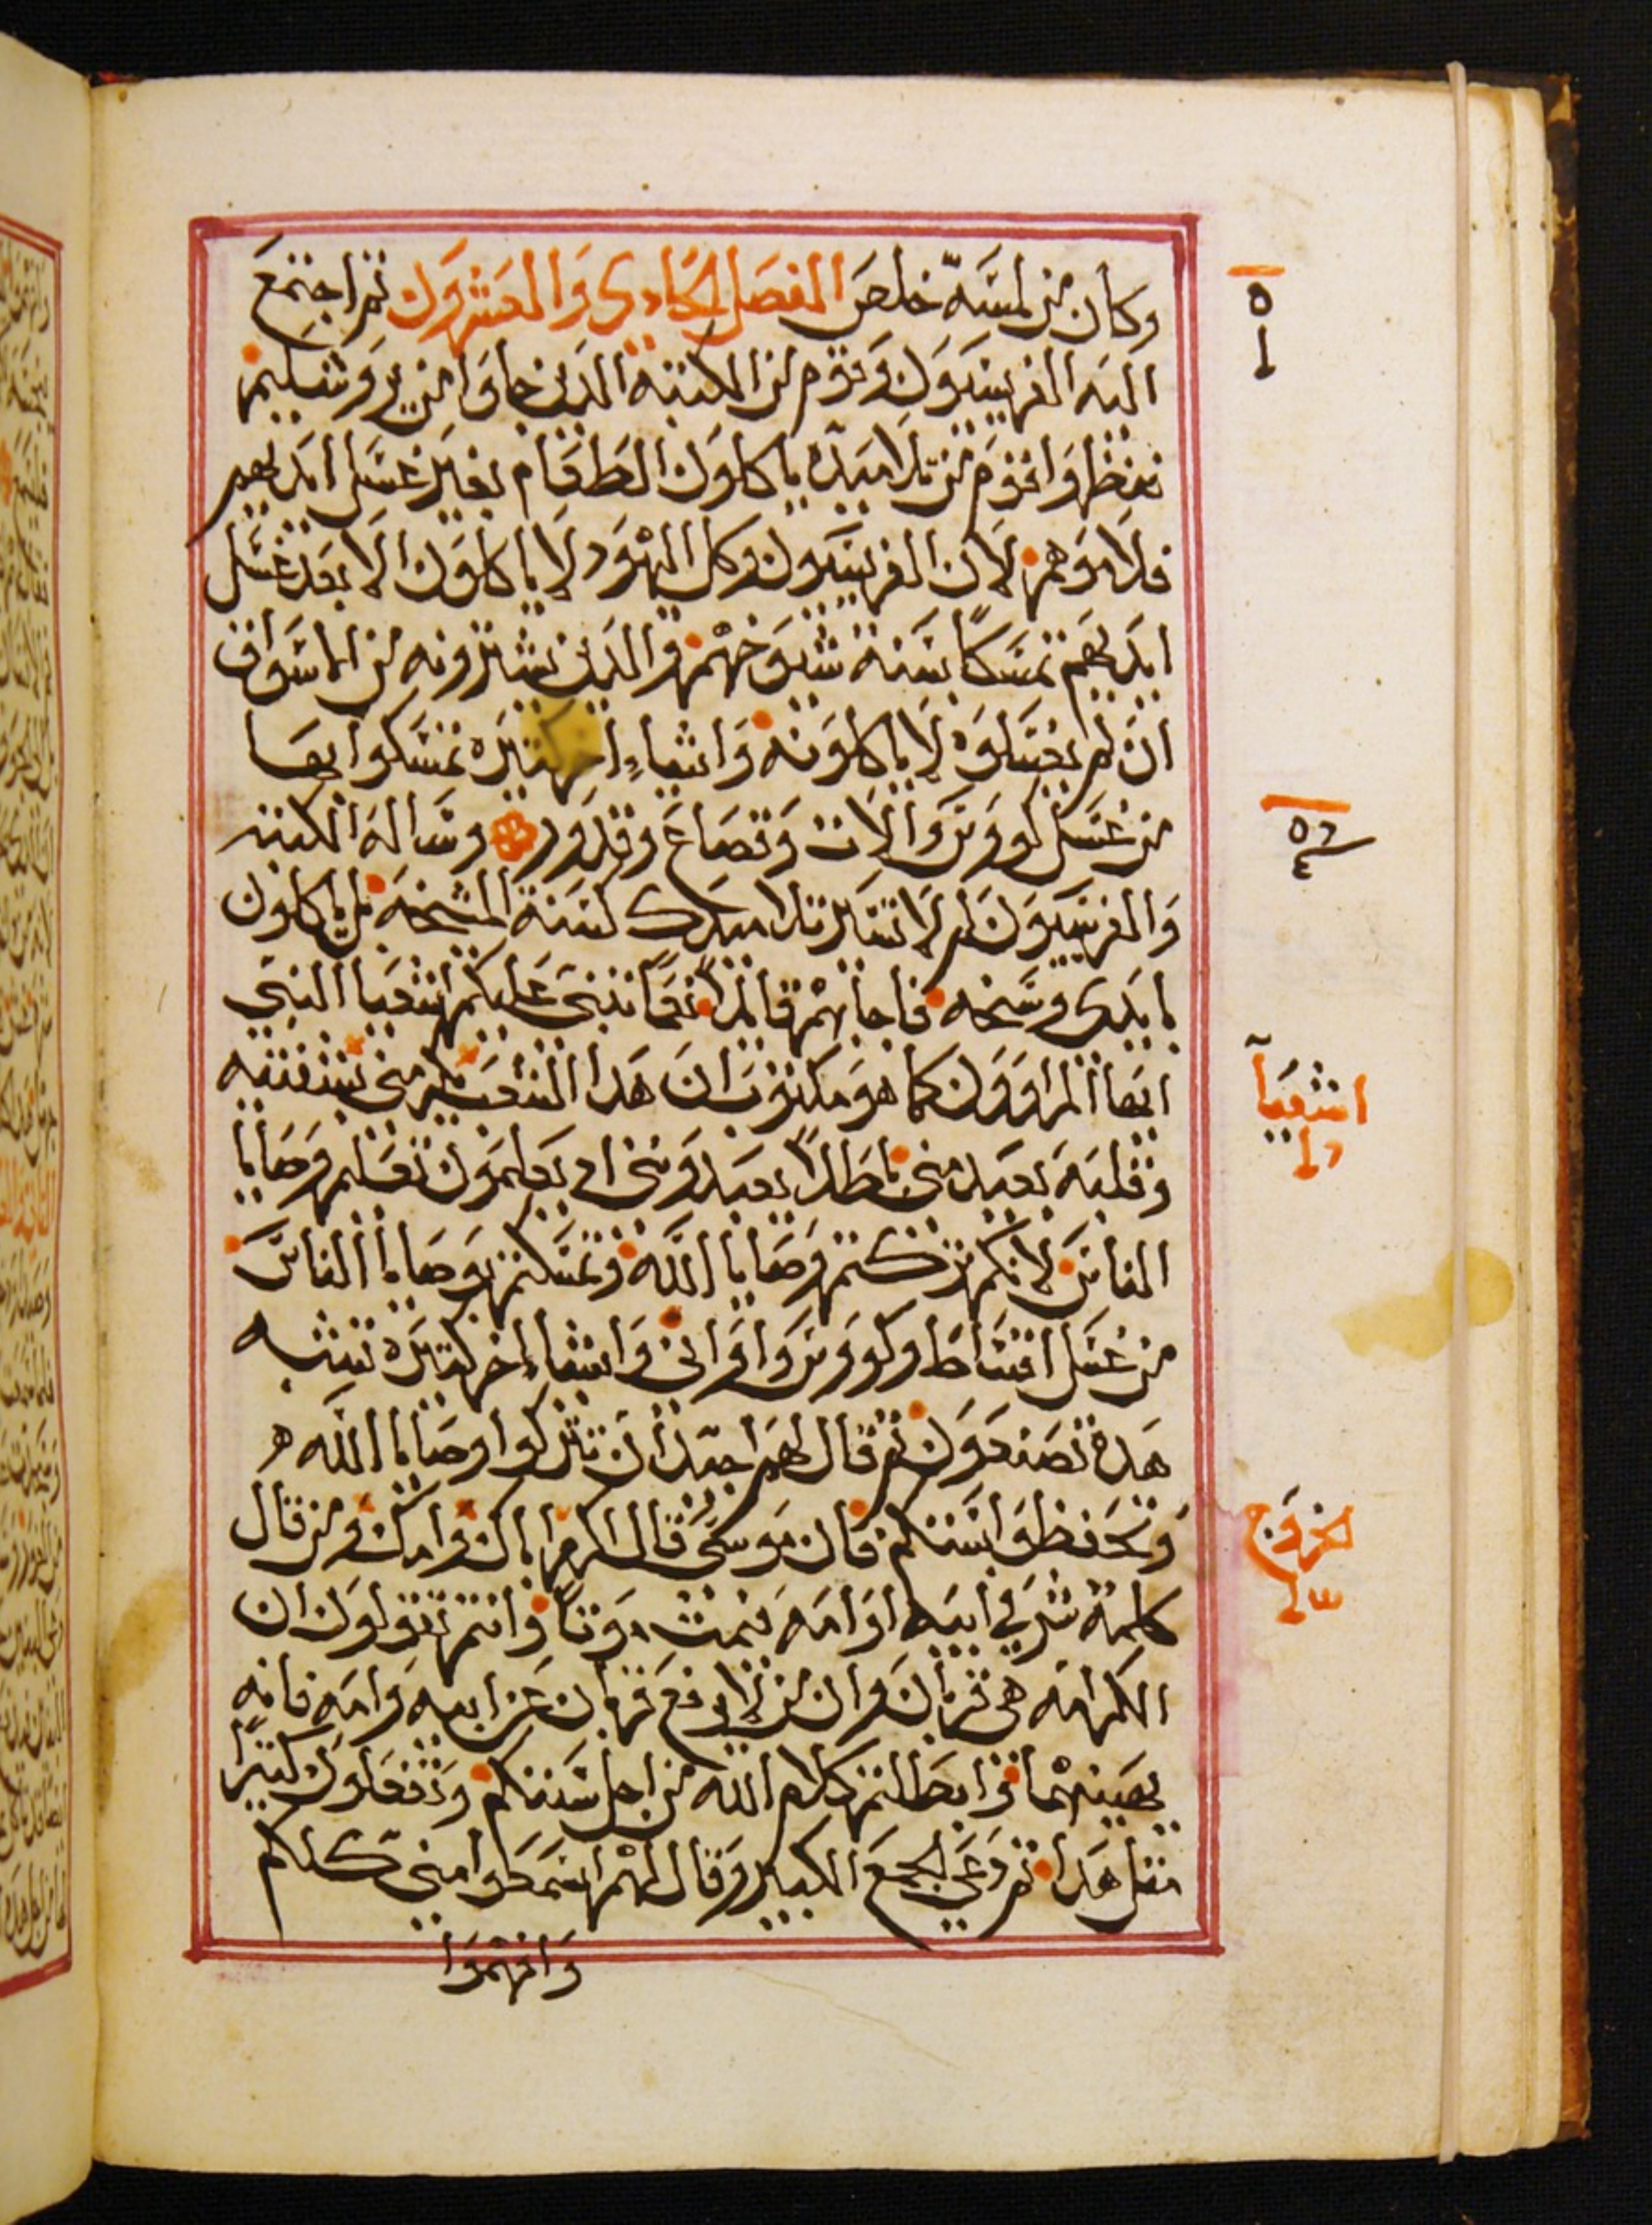 وكان من لمسه خلص الفصل الحادى والعشرون ثم اجتمع
اليه الفريسيون وقوم من الكتبه الدين جاوا من يروشليم
فنظروا قوم من تلاميده ياكلون الطعام بغير غسل ايديهم
فلاموهم لان الفريسيون وكل اليهود لا ياكلون الا بعد غسل
ايديهم تمسكا بسنة شيوخهم والدين يشترونه من الاسواق
ان لم يغسلوه لا ياكلونه واشياء اخر كتيره تمسكوا بها
من غسل كووس والات وقصاع وقدور وساله الكتبه
والفريسيون لم لا تسير تلاميدك كسنة المشيخه بل ياكلون
بايدى وسخه فاجابهم قايلا نعما تنبى عليكم اشعيا النبى
ايها المراوون كما هو مكتوب ان هدا الشعب يكرمنى بشفتيه
وقلبه بعيد منى باطلا يعبدوننى اد يعلمون تعليم وصايا
الناس لانكم تركتم وصايا الله وتمسكتم بوصايا الناس
من غسل اقساط وكووس واوانى واشياء اخر كتيره تشبه
هده تصنعون ثم قال لهم اجيدا ان تتركوا وصايا الله
وتحفظوا سنتكم فان موسى قال اكرم اباك وامك ومن قال
كلمة شر في ابيه او امه فيمت موتا وانتم تقولون ان
الكرامه هى قربان وان من لا يرفع قربان عن ابيه وامه فانه
يهينهما وابطلتم كلام الله من اجل سنتكم وتفعلون كتيرا
مثل هدا ثم دعى الجمع الكبير وقال لهم اسمعوا منى كلكم
وافهموا
اشعيا
الخروج